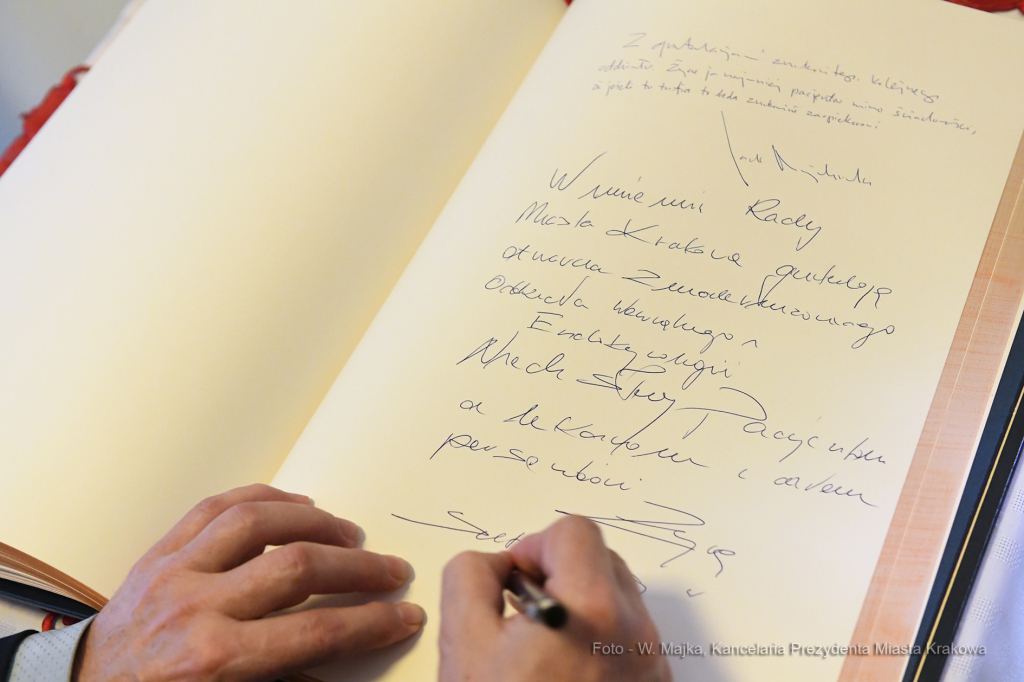 Z gratulacjami znakomitego kolejnego
oddziału. Życzę ja najmniej pacjentów mimo
a jeśli to trafią to będą znakomicie zaopiekowani
Jacek
W imieniu Rady
Miasta Krakowa gratuluję
otwarcia zmodernizowanego
Oddziału Wewnętrznego i
Endokrynologii
Niech służy Pacjentom
a lekarzom i całemu
personelowi
Foto - W. Majka, Kancelaria Prezydenta Miasta Krakowa